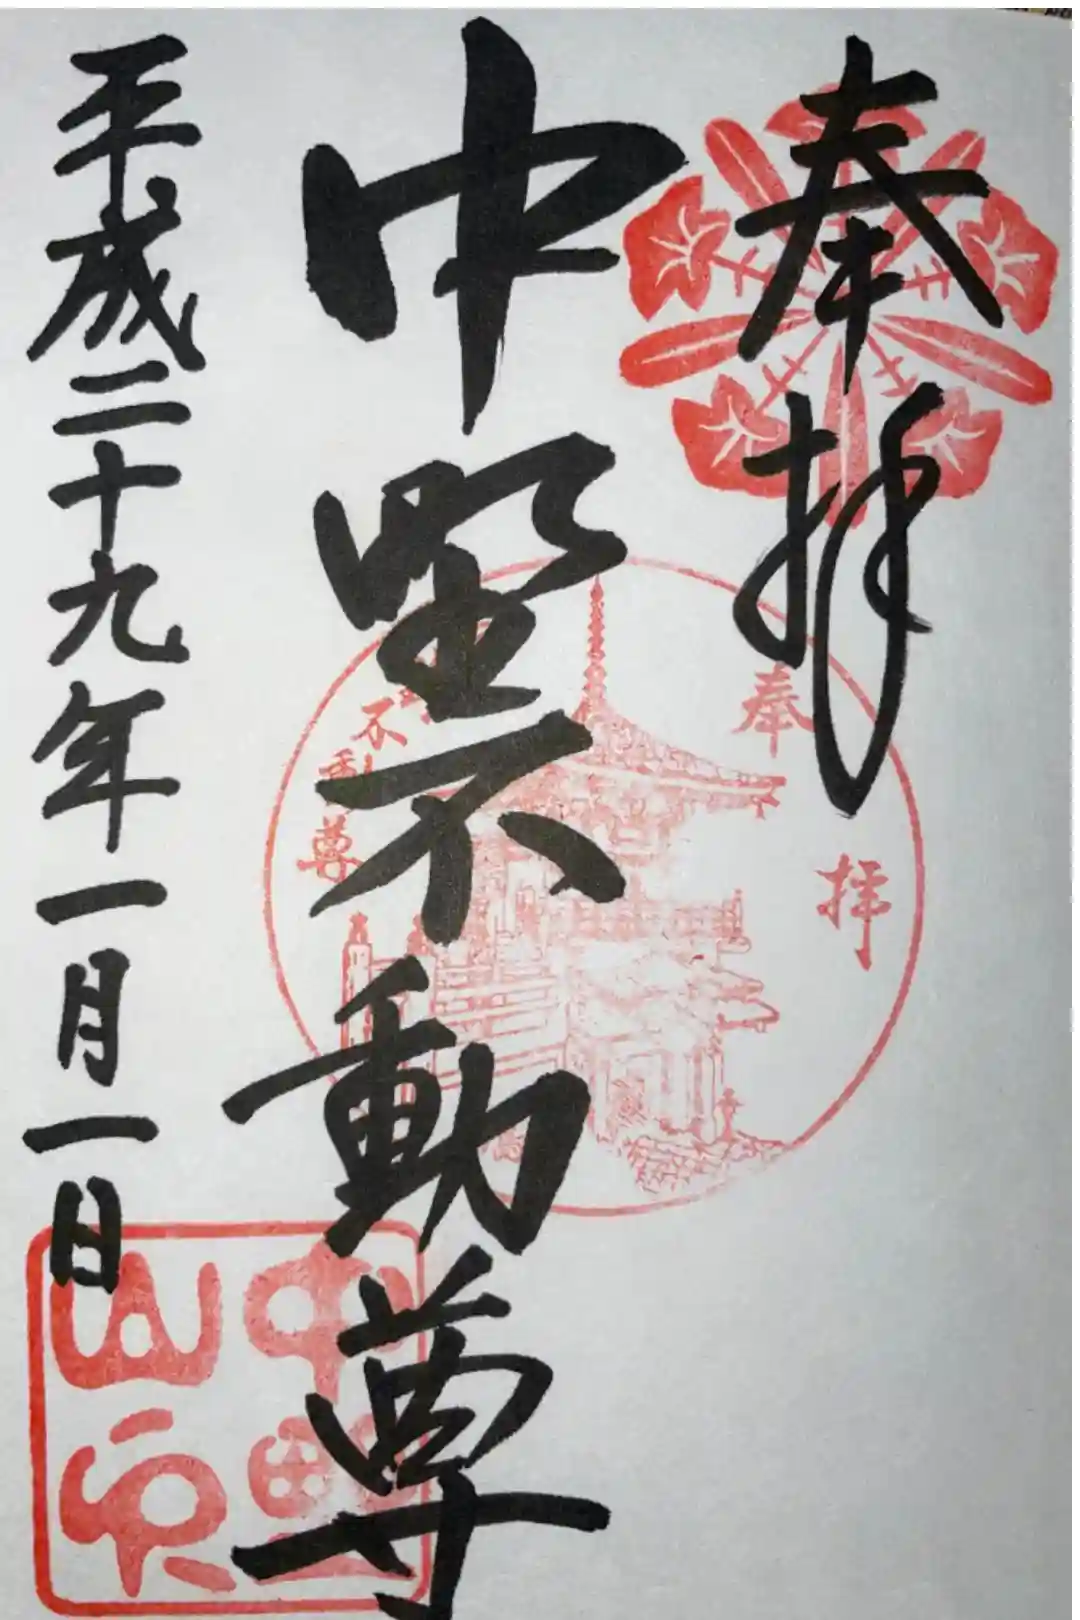 奉拝
中野不動尊
平成二十九年一月一日
奉拝
不動尊